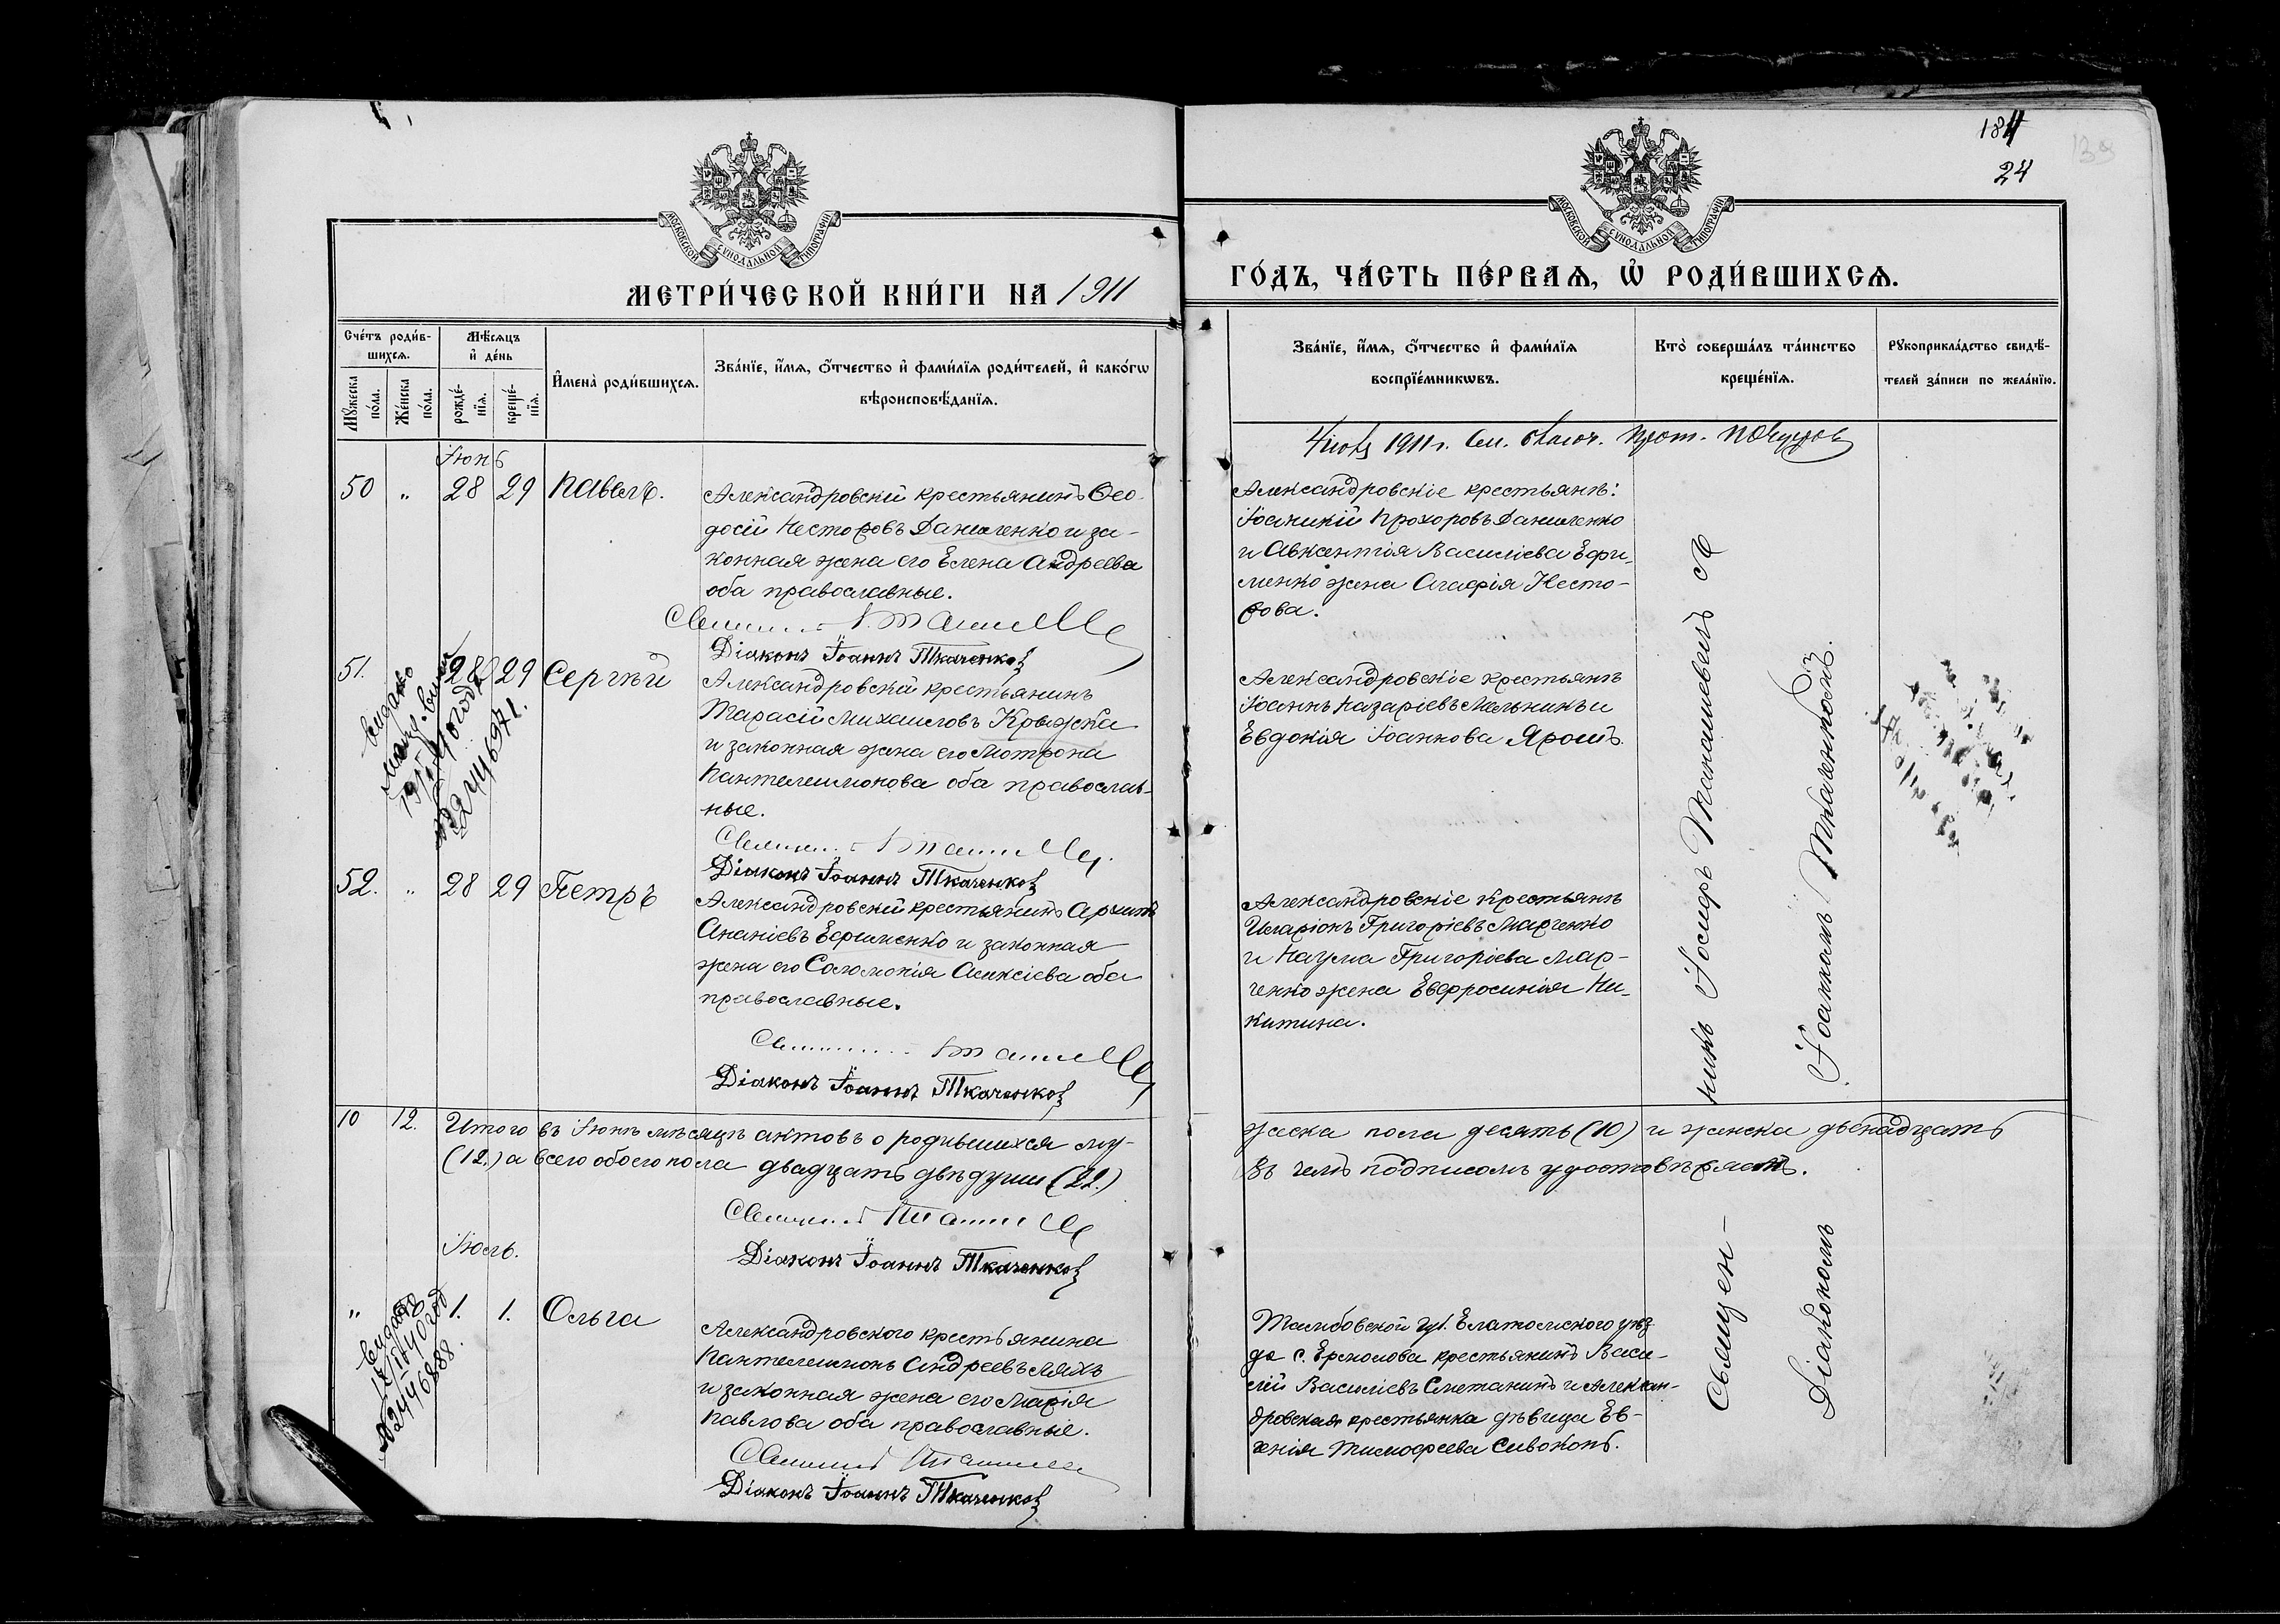 184
24
139
МОСКОВСКОЙ СѴНОДАЛЬНОЙ ТИПОГРАФІИ
МОСКОВСКОЙ СѴНОДАЛЬНОЙ ТИПОГРАФІИ
МЕТРИ́ЧЕСКОЙ КНИ́ГИ НА 1911
ГО́ДЪ, ЧА́СТЬ ПЕ́РВАѦ, Ѽ РОДИ́ВШИХСѦ.
Сче́тъ роди́в-
шихсѧ.
Мꙋ́жеска по́ла.
Же́нска по́ла.
Мѣ́сѧцъ
и҆ де́нь
рожде́-
нїѧ.
креще́-
нїѧ.
И҆мена̀ роди́вшихсѧ.
Зва́нїе, и҆́мѧ, ѻ҆́тчество и҆ фами́лїѧ роди́телей, и҆ како́гѡ
вѣроисповѣ́данїѧ.
Зва́нїе, и҆́мѧ, ѻ҆́тчество и҆ фами́лїѧ
воспрїе́мникѡвъ.
Кто̀ соверша́лъ та́инство
креще́нїѧ.
Рꙋкоприкла́дство свидѣ́-
телей за́писи по жела́нїю.
1911 г.
Іюнь
50 " 28 29 Павелъ.
Александровскій крестьянинъ Ѳео-
досій Несторовъ Даниленко и за-
конная жена его Елена Андреева
оба православные.
Діаконъ Іоаннъ Ткаченко
Александровскіе крестьяне:
Іоаникій Прохоровъ Даниленко
и Авксентія Василіева Ефи-
менко жена Агафія Несто-
рова.
51. 28 29 Сергѣй
Александровскій крестьянинъ
Тарасій Михаиловъ Крыжка
и законная жена его Мотрона
Пантелеимонова оба православ-
ные.
Діаконъ Іоаннъ Ткаченко
Александровскіе крестьяне
Іоаннъ Назаріевъ Мельникъ и
Евдокія Іоаннова Ярошъ.
52. " 28 29 Петръ
Александровскій крестьянинъ Архипъ
Ананіевъ Ефименко и законная
жена его Соломонія Алексіева оба
православные.
Діаконъ Іоаннъ Ткаченко
Александровскіе крестьяне
Иларіонъ Григоріевъ Марченко
и Наума Григоріева Мар-
ченко жена Евфросинія Ни-
китина.
10 12. Итого въ Іюнѣ мѣсяцѣ актовъ о родившихся му-
жеска пола десять (10) и женска двенадцать
(12.) а всего обоего пола двадцать двѣ души (22.)
въ чемъ подписомъ удостовѣряемъ.
Діаконъ Іоаннъ Ткаченко
Іюль.
" 1. 1. Ольга
Александровского крестьянина
Пантелеимонъ Андреевъ Ляхъ
и законная жена его Марія
Павлова оба православные.
Діаконъ Іоаннъ Ткаченко
Тамбовской губ. Елатомского уѣз-
да с. Ермолова крестьянинъ Васи-
лій Василіевъ Сметанинъ и Алексан-
дровская крестьянка дѣвица Ев-
генія Тимофеева Сивоконь.
Священ-
никъ Іосифъ
Діакономъ
Іоанномъ Ткаченкомъ.